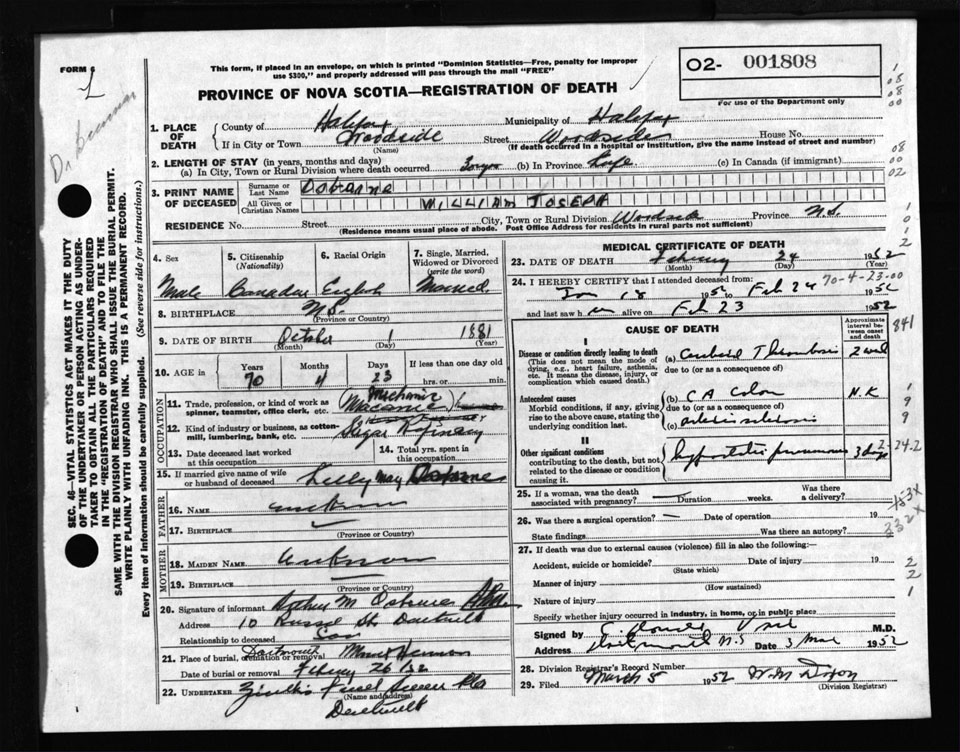 FORM 6
This form, if placed in an envelope, on which is printed "Dominion Statistics—Free, penalty for improper
use $300," and properly addressed will pass through the mail "FREE"
O2- 001808
For use of the Department only
PROVINCE OF NOVA SCOTIA—REGISTRATION OF DEATH
1. PLACE OF DEATH
County of Halifax Municipality of Halifax
If in City or Town Woodside Street Woodside House No.
(Name) (If death occurred in a hospital or institution, give the name instead of street and number)
2. LENGTH OF STAY (in years, months and days)
(a) In City, Town or Rural Division where death occurred (b) In Province Life (c) In Canada (if immigrant)
3. PRINT NAME OF DECEASED
Surname or Last Name Osborne
All Given or Christian Names WILLIAM JOSEPH
RESIDENCE No. Street City, Town or Rural Division Woodside Province N.S.
(Residence means usual place of abode. Post Office Address for residents in rural parts not sufficient)
4. Sex
Male
5. Citizenship (Nationality)
Canadian
6. Racial Origin
English
7. Single, Married, Widowed or Divorced (write the word)
Married
8. BIRTHPLACE N.S.
(Province or Country)
9. DATE OF BIRTH October 1 1881
(Month) (Day) (Year)
10. AGE in Years Months Days If less than one day old
70 4 23 hrs. or min.
OCCUPATION
11. Trade, profession, or kind of work as
spinner, teamster, office clerk, etc. Mechanic
12. Kind of industry or business, as cotton-
mill, lumbering, bank, etc. Sugar Refinery
13. Date deceased last worked
at this occupation
14. Total yrs. spent in
this occupation
15. If married give name of wife
or husband of deceased May Osborne
FATHER
16. NAME unknown
17. BIRTHPLACE
(Province or Country)
MOTHER
18. MAIDEN NAME unknown
19. BIRTHPLACE
(Province or Country)
20. Signature of informant M. Osborne
Address 10 Russel St. Dartmouth
Relationship to deceased Son
21. Place of burial, cremation or removal Dartmouth Mount Hermon
Date of burial or removal February 26/52
22. UNDERTAKER
(Name and address)
Dartmouth
MEDICAL CERTIFICATE OF DEATH
23. DATE OF DEATH February 24 1952
(Month) (Day)
24. I HEREBY CERTIFY that I attended deceased from: 70-4-23-00
Jan 18 1952 to Feb 24 1952
and last saw him alive on Feb 23 1952
CAUSE OF DEATH
Approximate interval between onset and death
841
I
Disease or condition directly leading to death
(This does not mean the mode of
dying, e.g., heart failure, asthenia,
etc. It means the disease, injury, or
complication which caused death.)
(a) Cerebral Thrombosis
due to (or as consequence of)
Antecedent causes
Morbid conditions, if any, giving
rise to the above cause, stating the
underlying condition last.
(b) CA Colon N.K
due to (or as a consequence of)
(c) arteriosclerosis
II
Other significant conditions
contributing to the death, but not
related to the disease or condition
causing it.
hypostatic pneumonia 3 days
2-24-2
25. If a woman, was the death
associated with pregnancy? Duration weeks. Was there a delivery?
26. Was there a surgical operation? Date of operation 19
State findings Was there an autopsy?
332X
27. If death was due to external causes (violence) fill in also the following:—
Accident, suicide or homicide? Date of injury 19
(State which)
Manner of injury
(How sustained)
Nature of injury
Specify whether injury occurred in industry, in home, or in public place
Signed by M.D.
Address Dartmouth N.S Date 3 Mar 1952
28. Division Registrar's Record Number
29. Filed March 5 1952 W.M. Dixon
(Division Registrar)
SEC. 46—VITAL STATISTICS ACT MAKES IT THE DUTY
OF THE UNDERTAKER OR PERSON ACTING AS UNDER-
TAKER TO OBTAIN ALL THE PARTICULARS REQUIRED
IN THE "REGISTRATION OF DEATH" AND TO FILE THE
SAME WITH THE DIVISION REGISTRAR WHO SHALL ISSUE THE BURIAL PERMIT.
WRITE PLAINLY WITH UNFADING INK. THIS IS A PERMANENT RECORD.
Every item of information should be carefully supplied. (See reverse side for instructions.)